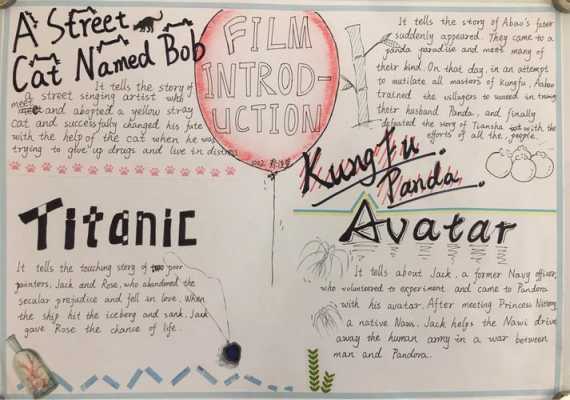 A Street
Cat Named Bob
It tells the story of
a street singing artist who
meet and adopted a yellow stray
cat and successfully changed his fate
with the help of the cat when he was
trying to give up drugs and live in distress
FILM
INTROD-
UCTION
It tells the story of Abao's father
suddenly appeared. They came to a
panda paradise and meet many of
their kind. On that day, in an attempt
to mutilate all masters of kungfu, Aabao
trained the villagers to succeed in training
their husband Panda, and finally
defeated the story of Tiansha with the
efforts of all the people.
Kung Fu
Panda.
Titanic
It tells the touching story of poor
painters, Jack and Rose, who abandoned the
secular prejudice and fell in love. When
the ship hit the iceberg and sank, Jack
gave Rose the chance of life.
Avatar
It tells about Jack, a former Navy officer,
who volunteered to experiment and came to Pandora
with his avatar. After meeting Princess
a native Nawi, Jack helps the Nawi drive
away the human army in a war between
man and Pandora.